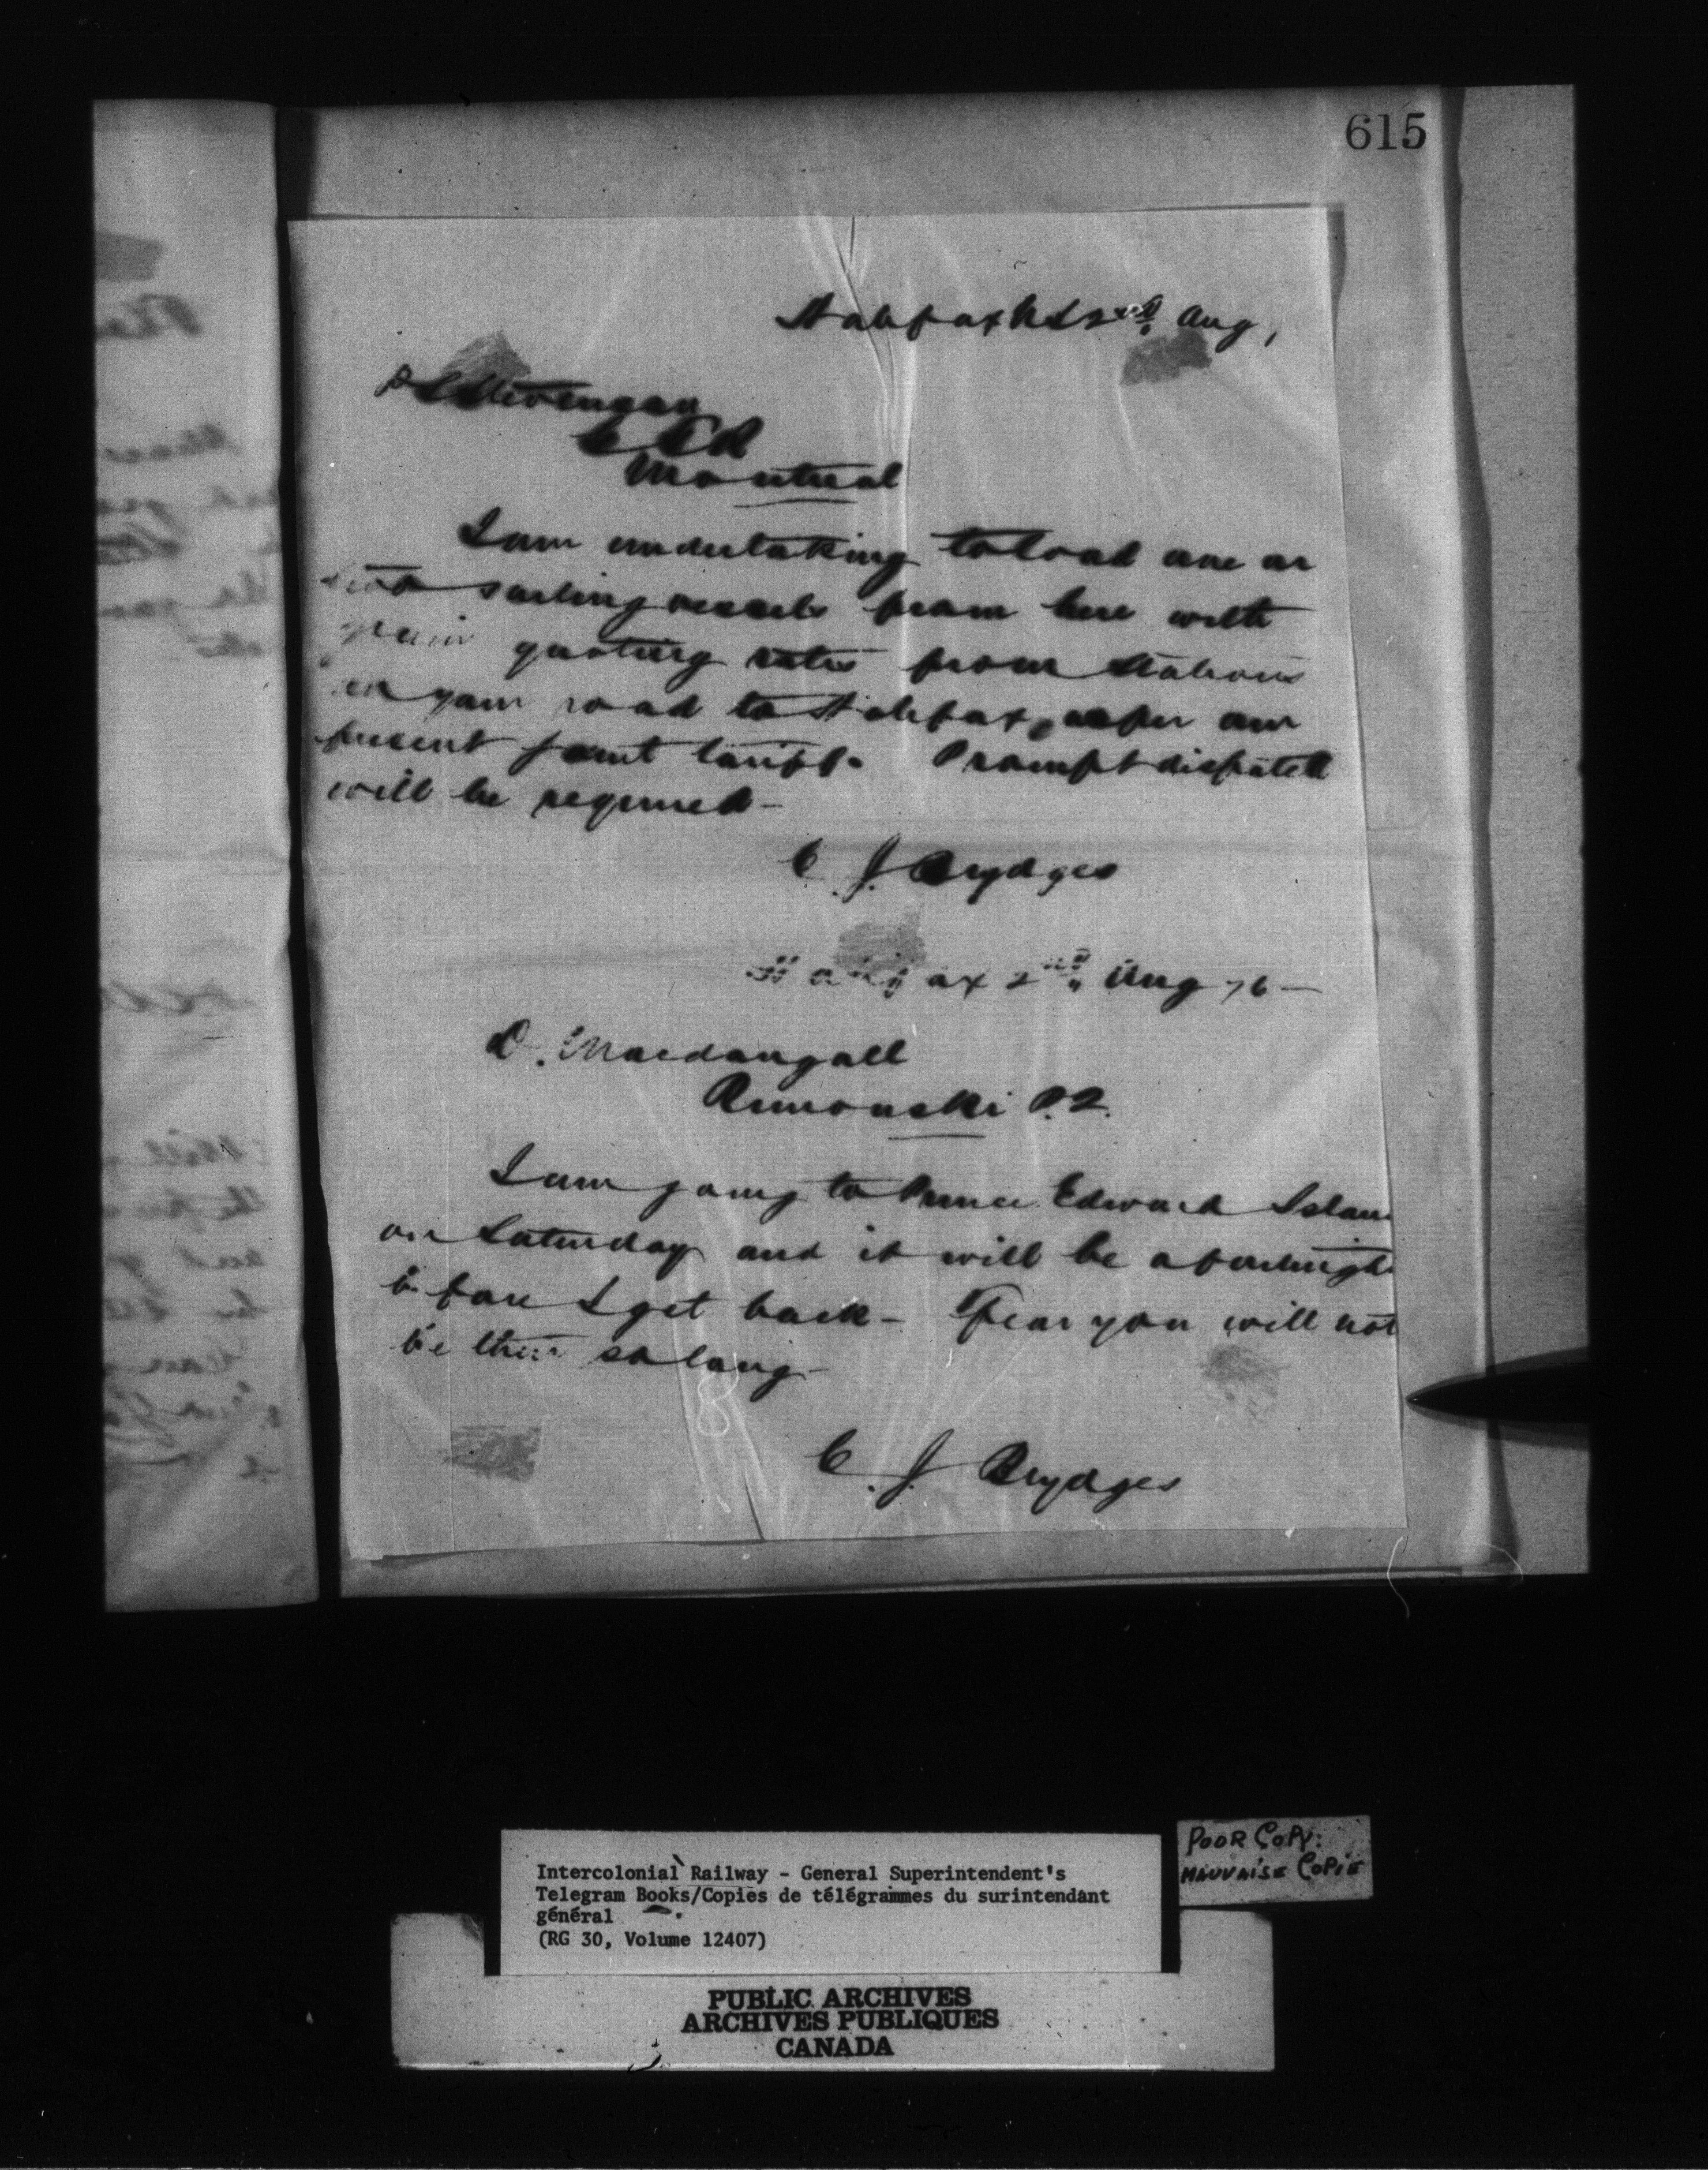 615
Halifax NS 2nd Aug,
P S Stevenson
G T R
Montreal
I am undertaking to load one or
two sailing vessels from here with
grain quoting rates from Stations
on your road to Halifax, as per our
present joint tariff. Prompt dispatch
will be required -
C J Brydges
Halifax 2nd Aug 76 -
D. Macdougall
Rimouski P.Q.
I am going to Prince Edward Islan
on Saturday and it will be a fortnight
before I get back - Fear you will not
be there so long -
C. J. Brydges
POOR COPY.
MAUVAISE COPIE
Intercolonial Railway - General Superintendent's
Telegram Books/Copies de télégrammes du surintendant
général
(RG 30, Volume 12407)
PUBLIC ARCHIVES
ARCHIVES PUBLIQUES
CANADA